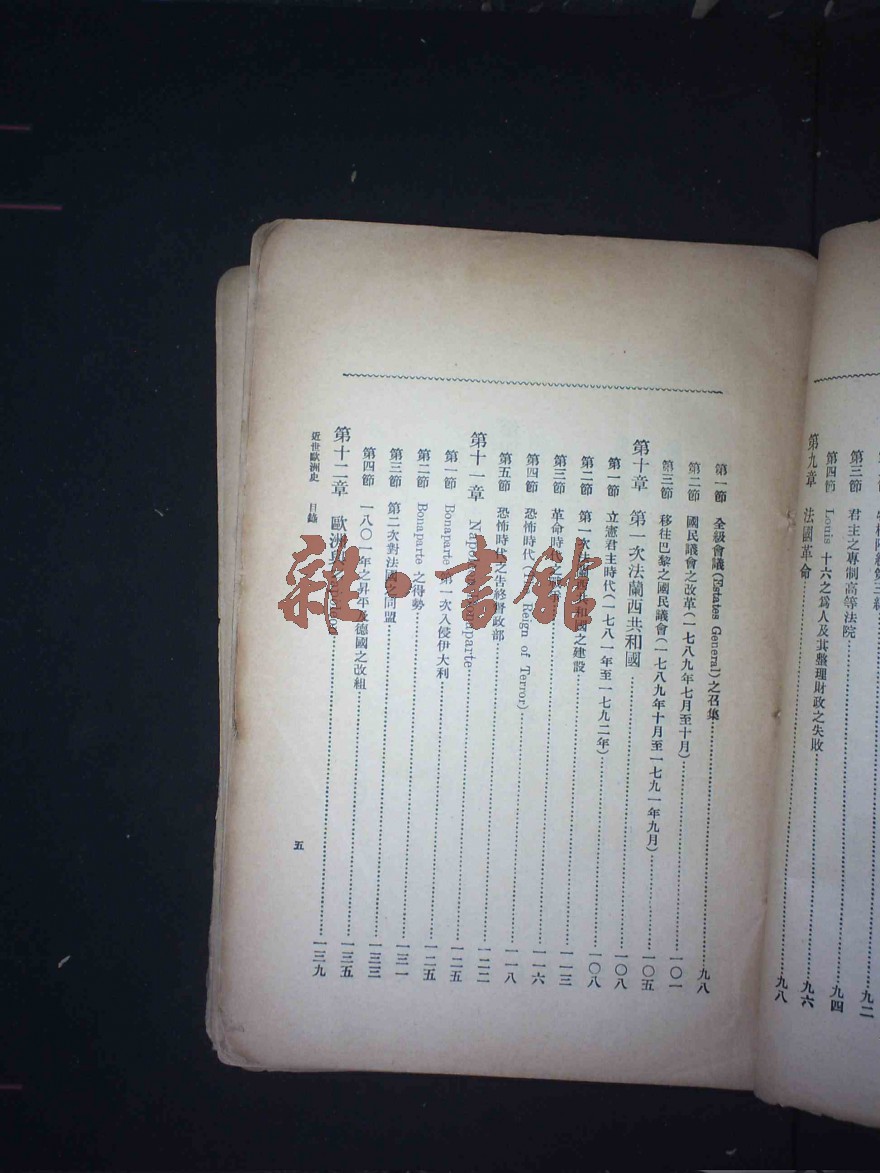 第三節 君主之專制高等法院
九二
第四節 Louis 十六之爲人及其整理財政之失敗
九四
九六
第九章 法國革命
九八
第一節 全級會議(Estates General)之召集
九八
第二節 國民議會之改革(一七八九年七月至十月)
一〇一
第三節 移往巴黎之國民議會(一七八九年十月至一七九一年九月)
一〇五
第十章 第一次法蘭西共和國
一〇八
第一節 立憲君主時代(一七八一年至一七九二年)
一〇八
第二節 第一次法蘭西共和國之建設
一一三
第三節 革命時代之戰
一一六
第四節 恐怖時代( Reign of Terror)
一一八
第五節 恐怖時代之告終督政部
一二二
第十一章 Napoleon Bonaparte
一二五
第一節 Bonaparte 第一次入侵伊大利
一二五
第二節 Bonaparte 之得勢
一三一
第三節 第二次對法國之同盟
一三三
第四節 一八〇一年之昇平及德國之改組
一三五
第十二章 歐洲與 Napoleon
一三九
近世歐洲史 目錄
五
雜·書館